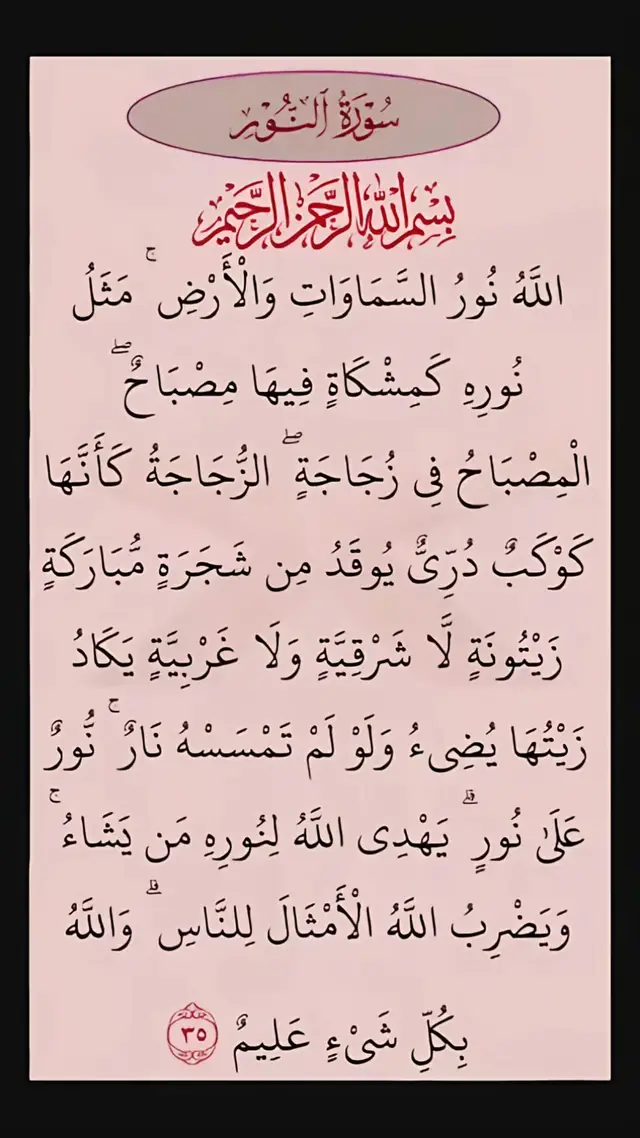 سُوْرَةُ ٱلنُّوْرِ
بِسْمِ اللَّهِ الرَّحْمَنِ الرَّحِيمِ
اللَّهُ نُورُ السَّمَاوَاتِ وَالْأَرْضِ ۚ مَثَلُ
نُورِهِ كَمِشْكَاةٍ فِيهَا مِصْبَاحٌ ۖ
الْمِصْبَاحُ فِى زُجَاجَةٍ ۖ الزُّجَاجَةُ كَأَنَّهَا
كَوْكَبٌ دُرِّىٌّ يُوقَدُ مِن شَجَرَةٍ مُّبَارَكَةٍ
زَيْتُونَةٍ لَّا شَرْقِيَّةٍ وَلَا غَرْبِيَّةٍ يَكَادُ
زَيْتُهَا يُضِىءُ وَلَوْ لَمْ تَمْسَسْهُ نَارٌ ۚ نُّورٌ
عَلَىٰ نُورٍ ۗ يَهْدِى اللَّهُ لِنُورِهِ مَن يَشَاءُ ۚ
وَيَضْرِبُ اللَّهُ الْأَمْثَالَ لِلنَّاسِ ۗ وَاللَّهُ
بِكُلِّ شَىْءٍ عَلِيمٌ ٣٥